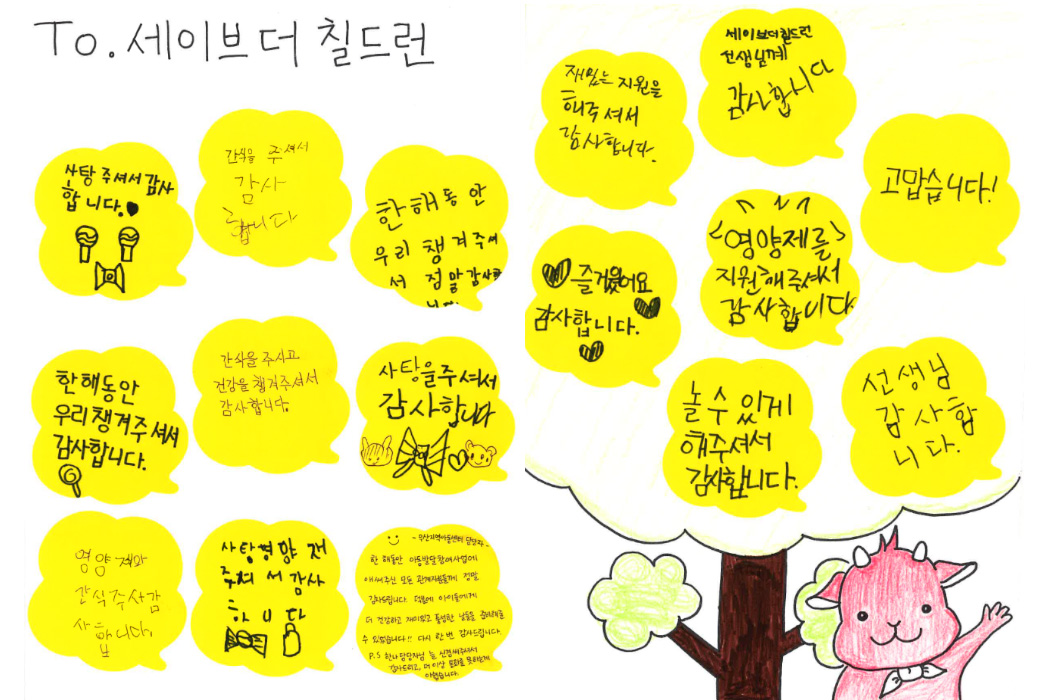 To. 세이브더 칠드런
사탕 주셔서 감사
합니다.
간식을 주셔서
감사
합니다
한해동안
우리 챙겨주셔
서 정말감사합
니다
한해동안
우리챙겨주셔서
감사합니다.
간식을 주시고
건강을 챙겨주셔서
감사합니다.
사탕을주셔서
감사합니다
영양제와
간식주사감
사합니다.
사탕영양제
주셔서 감사
하니다
한 해동안 아동발달참여사업에
애써주신 모든 관계자분들께 정말
감사드립니다. 덕분에 아이들에게
더 건강하고 재미있고 풍성한 날들을 선물해줄
수 있었습니다!! 다시 한 번 감사드립니다.
P.S 담당자님 늘 신경써주셔서
감사드리고, 더이상 못뵈는게
아쉽습니다.
재밌는 지원을
해주셔서
감사합니다.
세이브더칠드런
선생님께
감사합니다
고맙습니다!
<영양제를>
지원해주셔서
감사합니다.
즐거웠어요
감사합니다.
놀수있게
해주셔서
감사합니다.
선생님
감사합
니다.